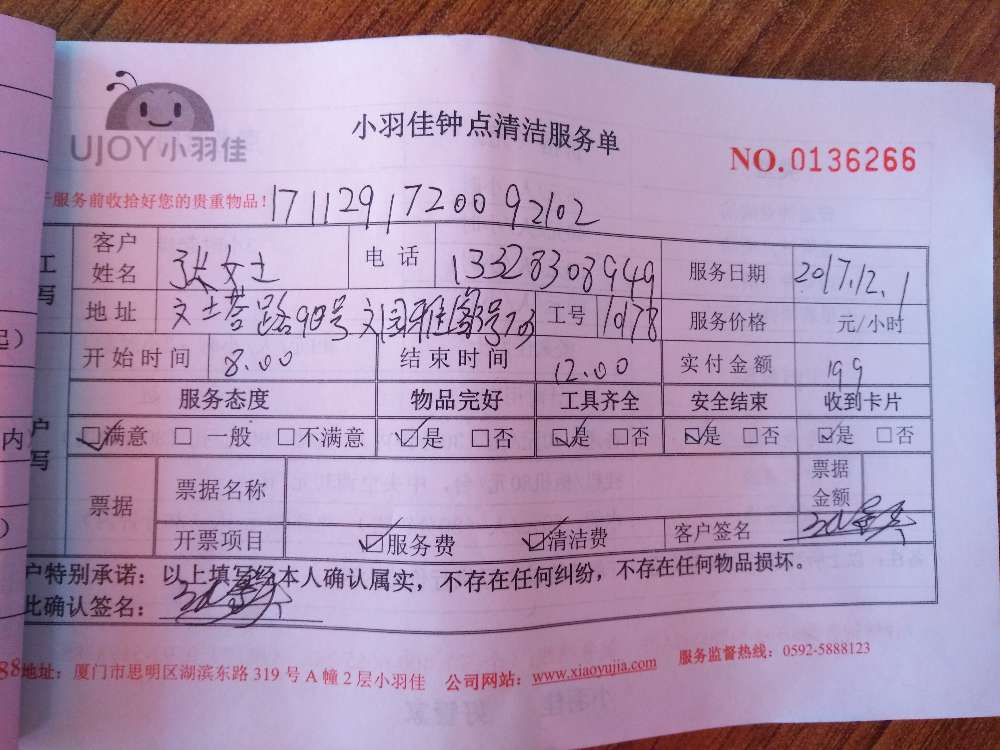 UJOY小羽佳
小羽佳钟点清洁服务单
NO.0136266
服务前收拾好您的贵重物品！
17112917200092102
客户姓名 张女士 电话 13328308949 服务日期 2017.12.1
地址 文士塔路98号文园雅阁 工号 1078 服务价格 元/小时
开始时间 8.00 结束时间 12.00 实付金额 199
服务态度 物品完好 工具齐全 安全结束 收到卡片
满意 一般 不满意 是 否 是 否 是 否 是 否
票据 票据名称 票据金额
开票项目 服务费 清洁费 客户签名
户特别承诺：以上填写经本人确认属实，不存在任何纠纷，不存在任何物品损坏。
此确认签名：
88地址：厦门市思明区湖滨东路319号A幢2层小羽佳 公司网站：www.xiaoyujia.com 服务监督热线：0592-5888123